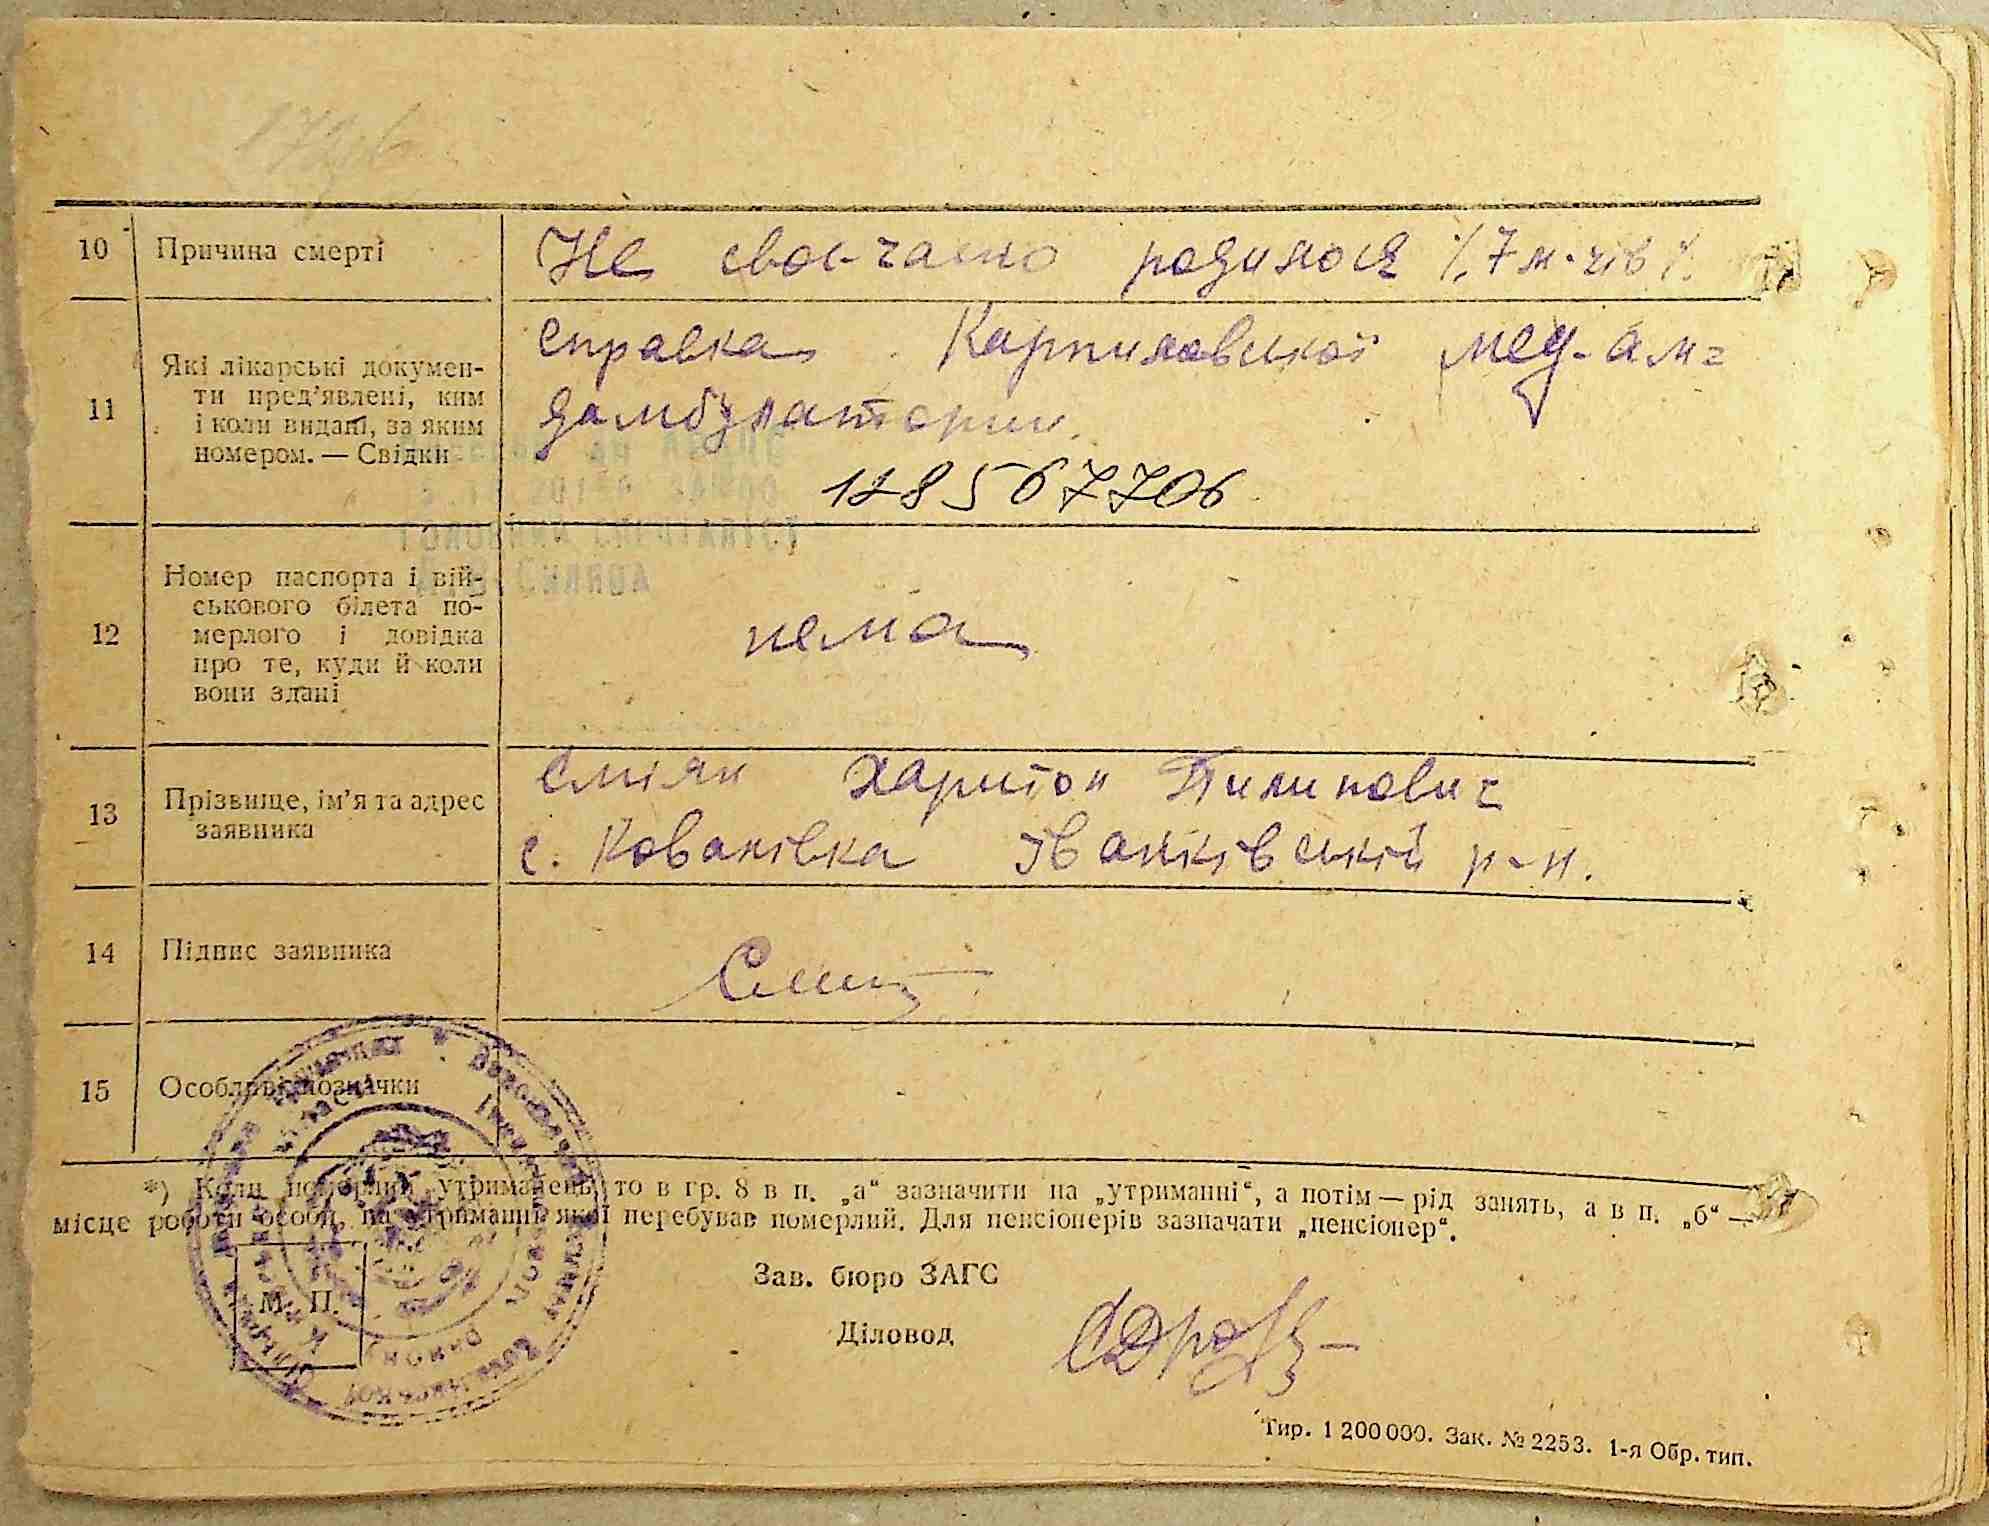 10 Причина смерті
Не своє-часно родилося /.7 м-ців/.
11 Які лікарські докумен-
ти пред'явлені, ким
і коли видані, за яким
номером. — Свідки
справка Карпиловської мед-ам=
дамбулатории.
128567706
12 Номер паспорта і вій-
ськового білета по-
мерлого і довідка
про те, куди й коли
вони здані
нема
13 Прізвище, ім'я та адрес
заявника
Сміян Харитон Пилипович
с. Ковалівка Іванківській р-н.
14 Підпис заявника
15 Особливі позначки
*) Коли померлий утриманець, то в гр. 8 в п. „а“ зазначити на „утриманні“, а потім — рід занять, а в п. „б“ —
місце роботи особи, на утриманні якої перебував померлий. Для пенсіонерів зазначати „пенсіонер“.
М. П.
Зав. бюро ЗАГС
Діловод
Тир. 1 200 000. Зак. № 2253. 1-я Обр. тип.